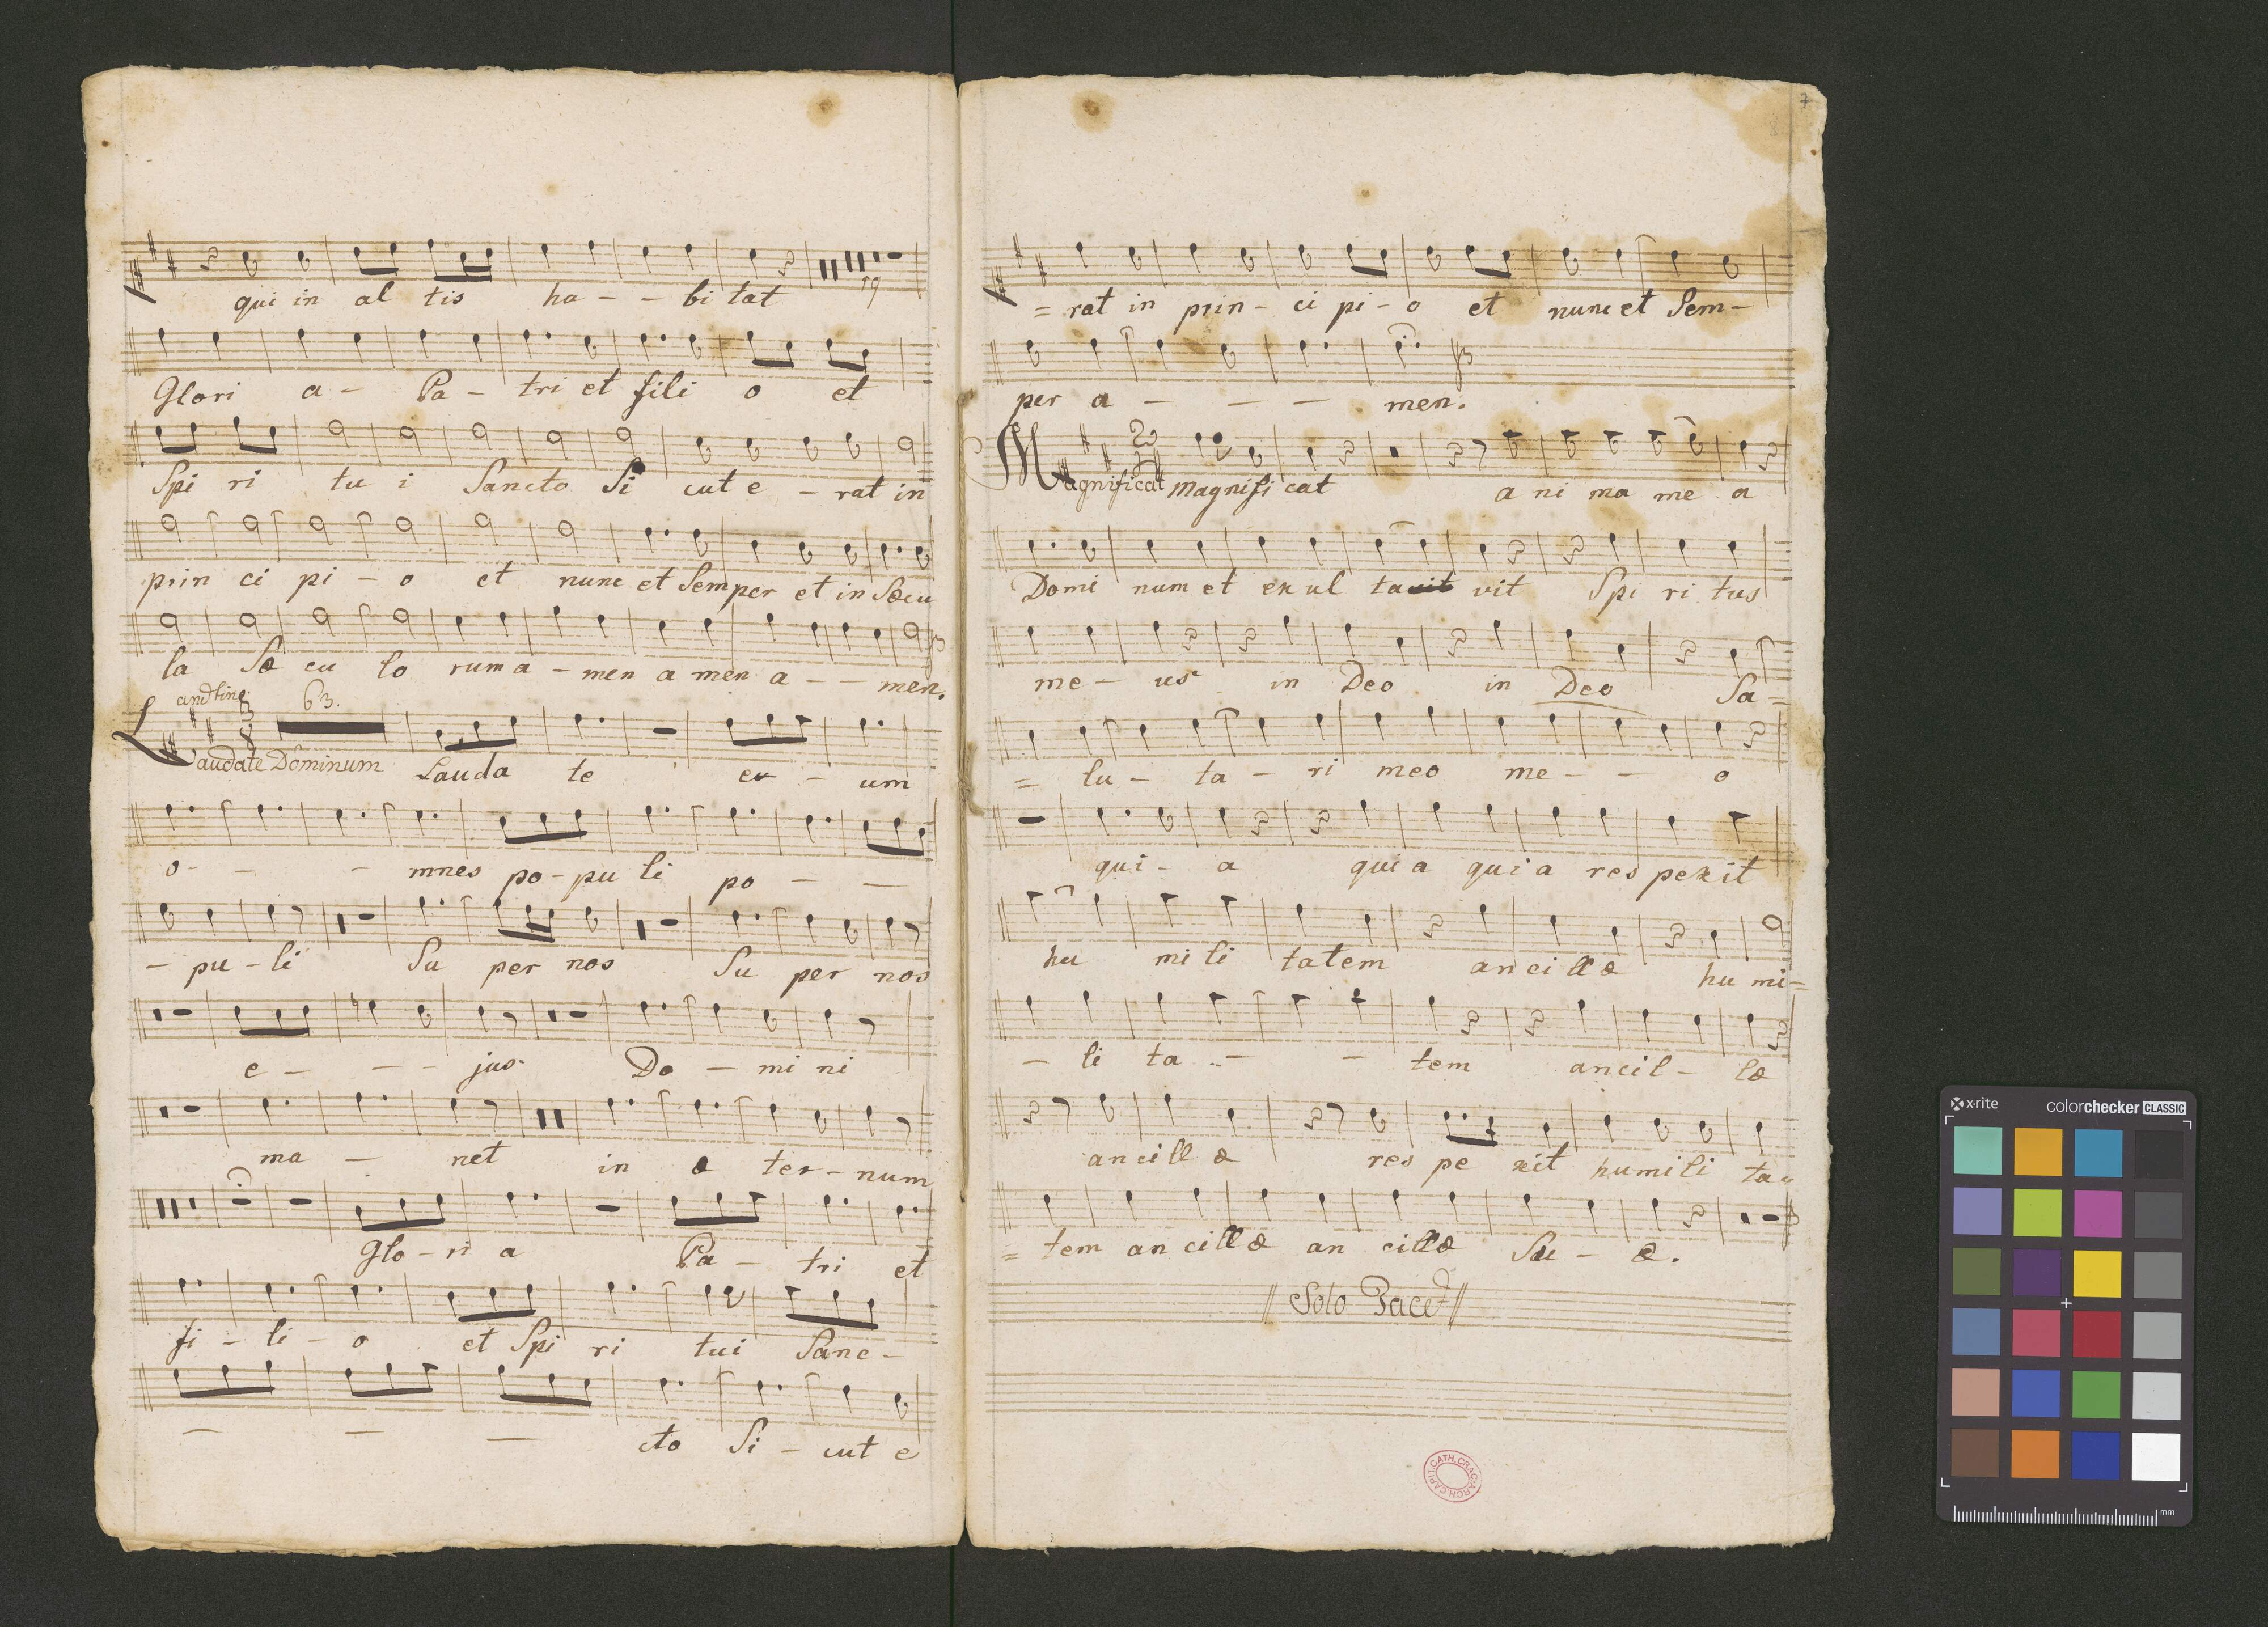 qui in al tis ha - - bi tat 19
Glori a - Pa - tri et fili o et
Spi ri tu i Sancto Si cut e - rat in
prin ci pi - o et nunc et Semper et in Sæcu
la Sæ cu lo rum a - men a men a - - men.
andtino 63.
Laudate Dominum Lauda te e - um
o - - - mnes po - pu li po - -
- pu - li Su per nos Su per nos
e - - - jus Do - mi ni
ma - net in æ ter - num
Glo - ri a Pa - tri et
fi - li - o et Spi ri tui Sanc -
- - - cto Si - cut e
7
= rat in prin - ci pi - o et nunc et Sem -
per a - - - men.
Magnificat Magnifi cat a ni ma me a
Domi num et ex ul tavit vit Spi ri tus
me - us in Deo in Deo Sa =
= lu - ta - ri meo me - - o
qui - a qui a qui a res pexit
hu mi li tatem an ci llæ hu mi =
- li ta - - tem ancil - læ
an ci ll æ res pe xit humili ta =
= tem an ci llæ an cillæ Su - æ.
// Solo Tacet //
ARCH. CAPIT. CATH. CRAC.
x-rite colorchecker CLASSIC
mm